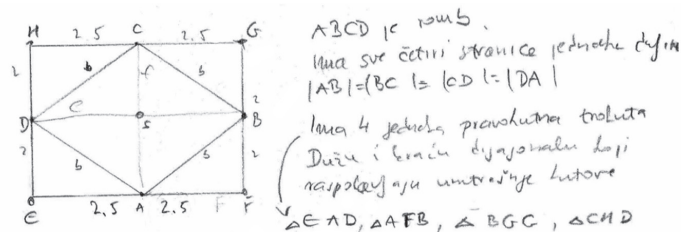 H 2.5 C 2.5 G
2 b f b
D e S B 2
2 b b 2
E 2.5 A 2.5 F F
ABCD je romb.
Ima sve četiri stranice jednake
|AB|=|BC|=|CD|=|DA|
Ima 4 jednaka pravokutna trokuta
Dužu i kraću dijagonalu koji
raspolavljaju unutrašnje kutove
△EAD, △AFB, △BGC, △CHD